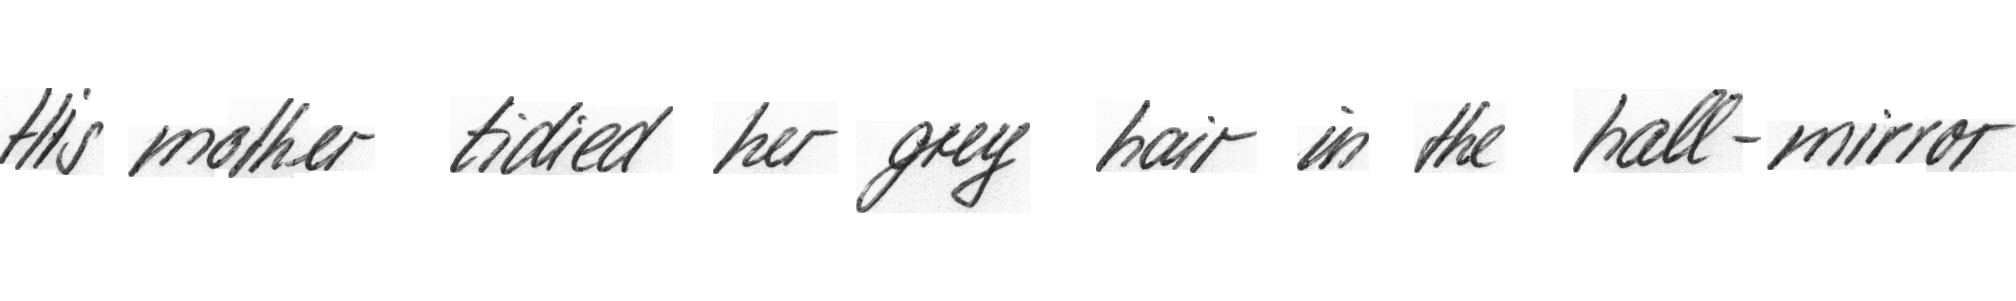 His mother tidied her grey hair in the hall-mirror